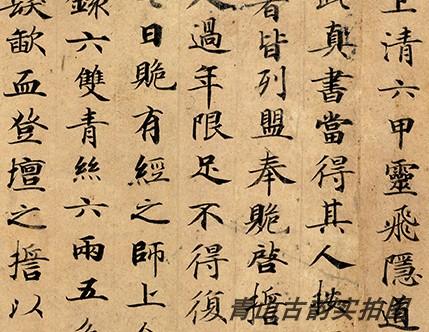 上清六甲靈飛隱道
此真書當得其人
者皆列盟奉貺啓誓
人過年限足不得復
曰貺有經之師上
錄六雙青絲六兩五
歃血登壇之誓以
青山古韵实拍图